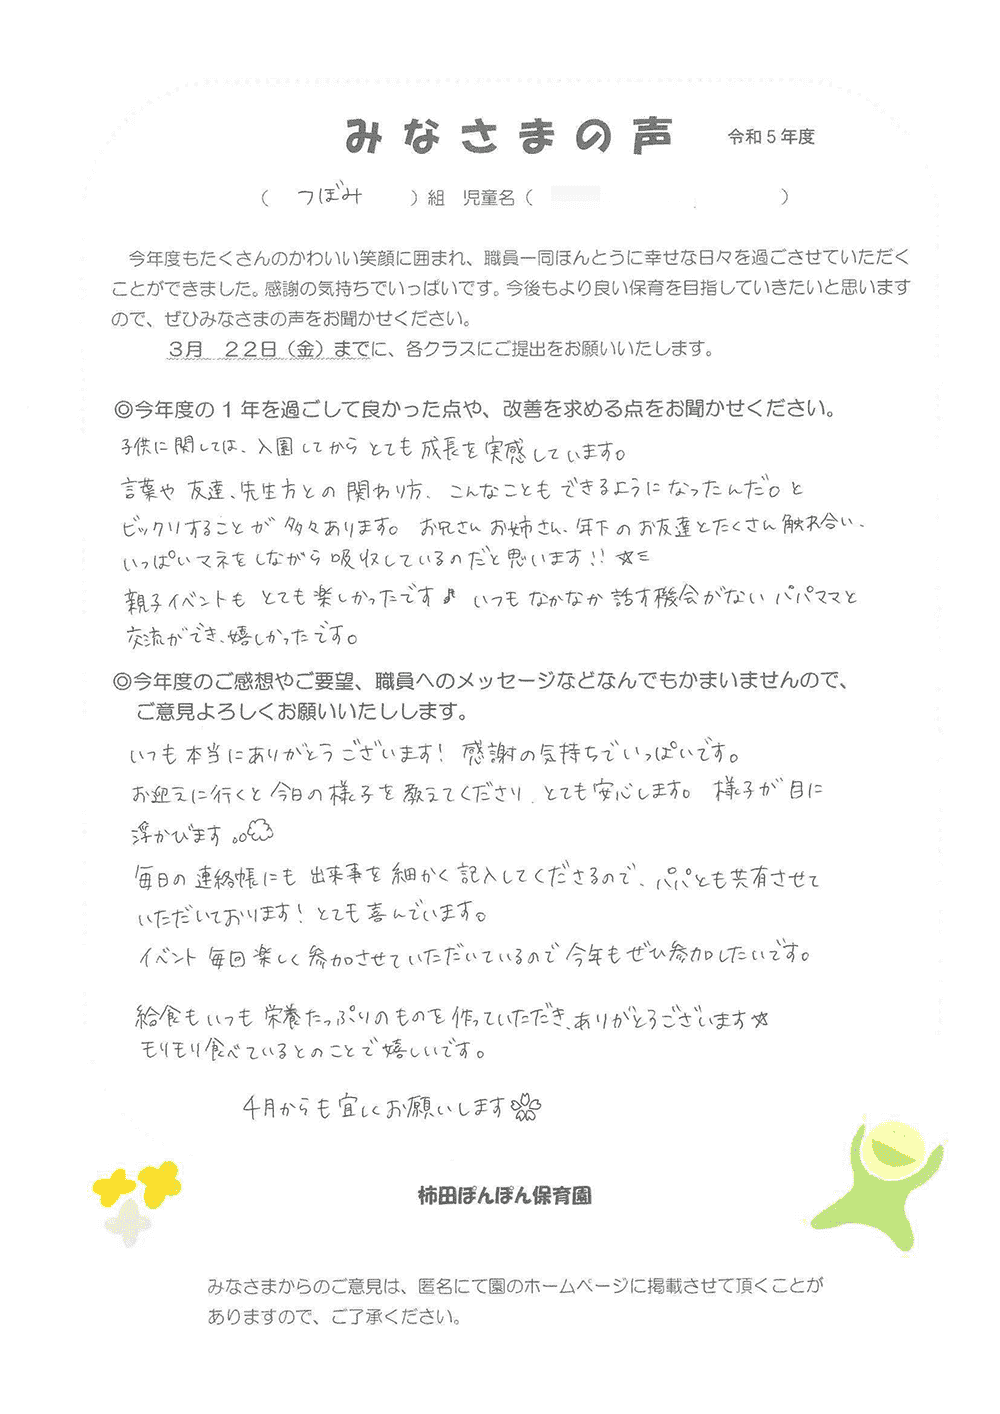 みなさまの声 令和5年度
（ つぼみ ）組 児童名（ ）
今年度もたくさんのかわいい笑顔に囲まれ、職員一同ほんとうに幸せな日々を過ごさせていただく
ことができました。感謝の気持ちでいっぱいです。今後もより良い保育を目指していきたいと思います
ので、ぜひみなさまの声をお聞かせください。
3月 22日（金）までに、各クラスにご提出をお願いいたします。
◎今年度の1年を過ごして良かった点や、改善を求める点をお聞かせください。
子供に関しては、入園してからとても成長を実感しています。
言葉や友達、先生方との関わり方、こんなこともできるようになったんだ。と
ビックリすることが多々あります。お兄さんお姉さん、年下のお友達とたくさん触れ合い、
いっぱいマネをしながら吸収しているのだと思います!!☆彡
親子イベントもとても楽しかったです♪いつもなかなか話す機会がないパパママと
交流ができ、嬉しかったです。
◎今年度のご感想やご要望、職員へのメッセージなどなんでもかまいませんので、
ご意見よろしくお願いいたしします。
いつも本当にありがとうございます！感謝の気持ちでいっぱいです。
お迎えに行くと今日の様子を教えてくださり、とても安心します。様子が目に
浮かびます。
毎日の連絡帳にも出来事を細かく記入してくださるので、パパとも共有させて
いただいております！とても喜んでいます。
イベント毎回楽しく参加させていただいているので今年もぜひ参加したいです。
給食もいつも栄養たっぷりのものを作っていただき、ありがとうございます☆
モリモリ食べているとのことで嬉しいです。
4月からも宜しくお願いします
柿田ぽんぽん保育園
みなさまからのご意見は、匿名にて園のホームページに掲載させて頂くことが
ありますので、ご了承ください。